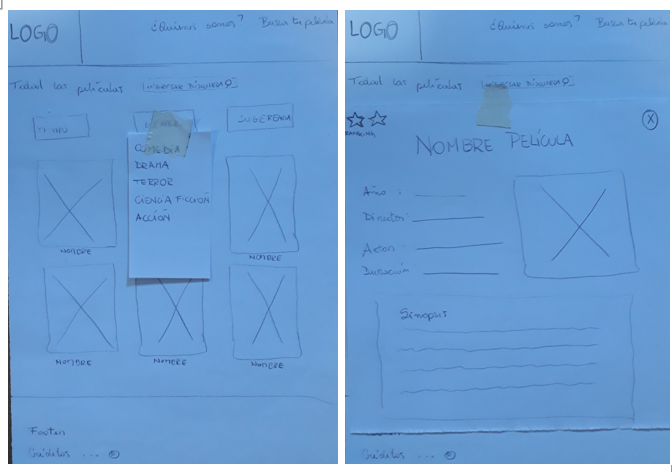 LOGO
¿Quienes somos? Busca tu película
Todas las películas
SUGERENCIA
COMEDIA
DRAMA
TERROR
CIENCIA FICCIÓN
ACCIÓN
NOMBRE
NOMBRE
NOMBRE
NOMBRE
NOMBRE
Footer
Créditos ... ©
LOGO
¿Quienes somos? Busca tu película
Todas las películas
NOMBRE PELÍCULA
Año :
Director:
Actor :
Duración
Sinopsis
Footer
Créditos ... ©